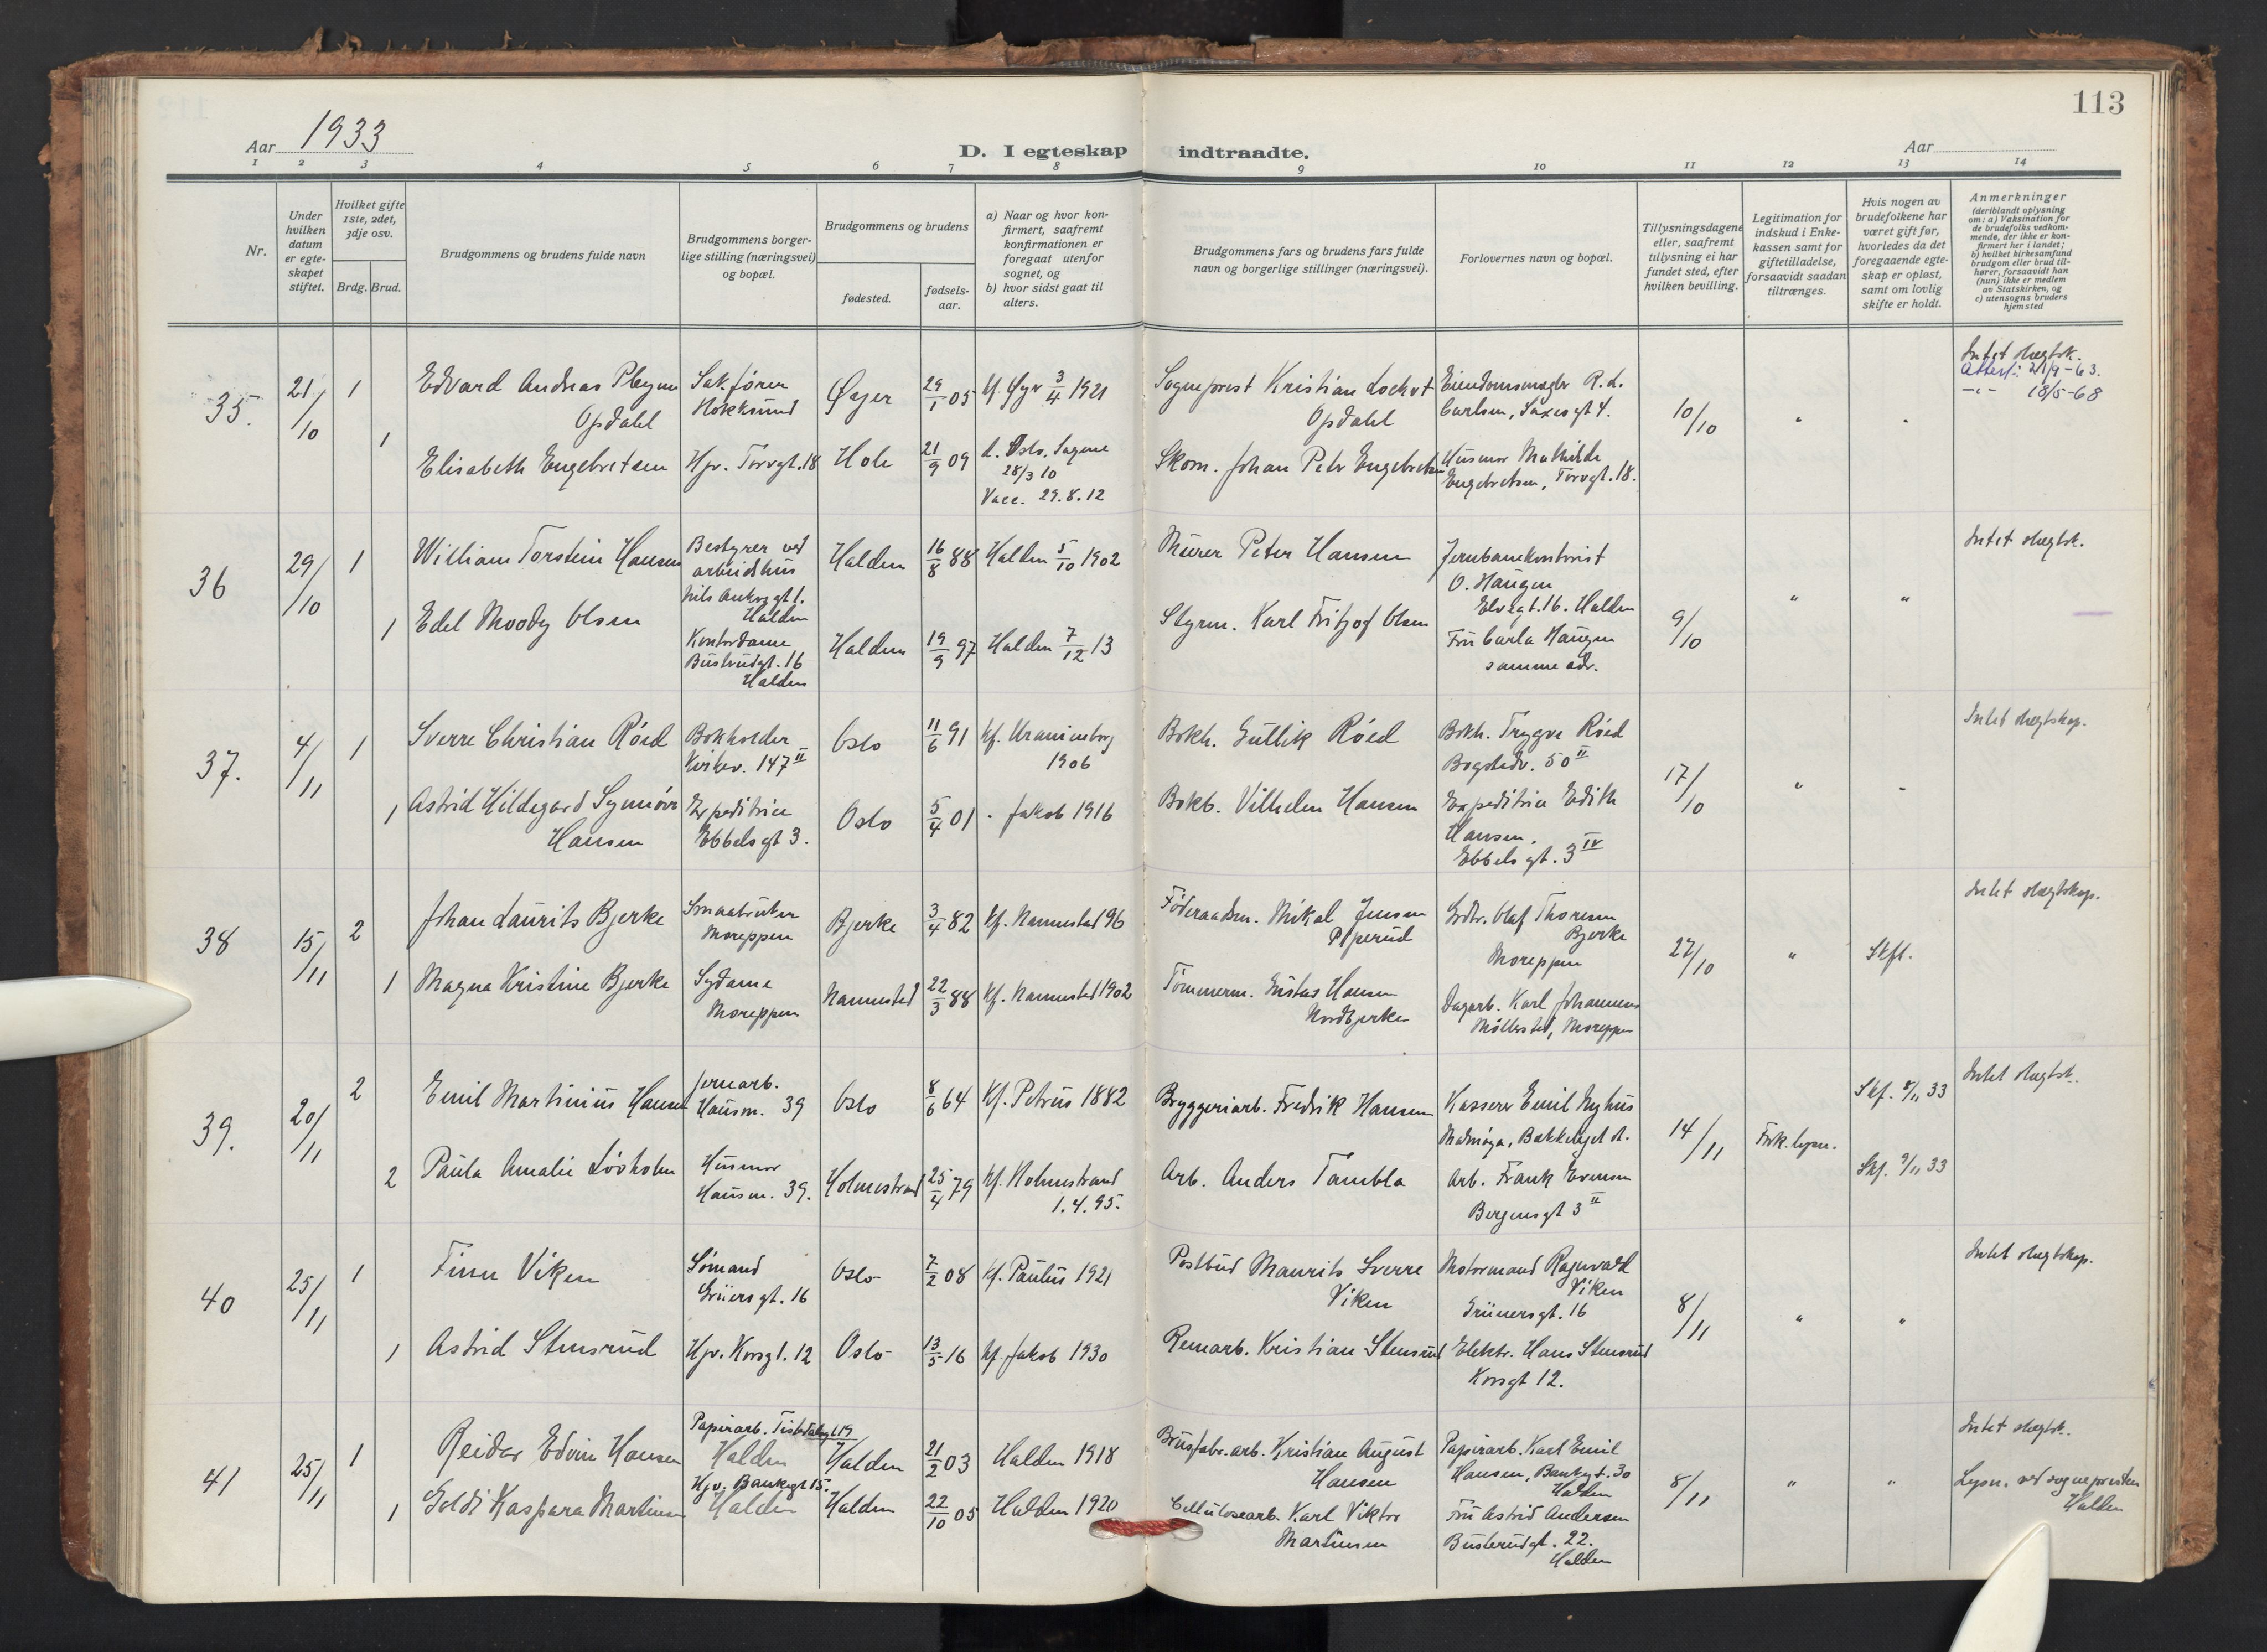 113
Aar 1933
D. I egteskap indtraadte.
Aar
1 2 3 4 5 6 7 8 9 10 11 12 13 14
Nr.
Under hvilken datum er egteskapet stiftet.
Hvilket gifte 1ste, 2det, 3dje osv.
Brdg. Brud.
Brudgommens og brudens fulde navn
Brudgommens borgerlige stilling (næringsvei) og bopæl.
Brudgommens og brudens
fødested.
fødsels-aar.
a) Naar og hvor konfirmert, saafremt konfirmationen er foregaat utenfor sognet, og
b) hvor sidst gaat til alters.
Brudgommens fars og brudens fars fulde navn og borgerlige stillinger (næringsvei).
Forlovernes navn og bopæl.
Tillysningsdagene eller, saafremt tillysning ei har fundet sted, efter hvilken bevilling.
Legitimation for indskud i Enkekassen samt for giftetilladelse, forsaavidt saadan tiltrænges.
Hvis nogen av brudefolkene har været gift før, hvorledes da det foregaaende egteskap er opløst, samt om lovlig skifte er holdt.
Anmerkninger
(deriblandt oplysning om: a) Vaksination for de brudefolks vedkommende, der ikke er konfirmert her i landet;
b) hvilket kirkesamfund brudgom eller brud tilhører, forsaavidt han (hun) ikke er medlem av Statskirken, og
c) utensogns bruders hjemsted
35. 21/10 1 Edvard Andreas Opdahl
Sakfører Hokksund
Øyer 29/1 05 kf. Øyr 3/4 1921
Sogneprest Kristian Lockert Opdahl
Eiendomsmegler R. L. Carlsen, Saxesgt 4.
10/10 " "
Intet slegtsk.
Attest: 21/9-63.
-"- 18/5-68
1 Elisabeth Engebretsen
Hpr. Torvgt. 18
Hole 21/9 09 d. Oslo, Sagene 28/3 10
Vacc. 29.8.12
Skom. Johan Peter Engebretsen
Husmor Mathilde Engebretsen, Torvgt. 18.
36 29/10 1 William Torstein Hansen
Bestyrer ved arbeidshus
Nils Ankersgt 1. Halden
Halden 16/8 88 Halden 5/10 1902
Murer Peter Hansen
Jernbanekontorist O. Haugen
Elvegt. 16. Halden
9/10 " "
Intet slegtsk.
1 Edel Moody Olsen
Kontordame Busterudgt. 16 Halden
Halden 19/9 97 Halden 7/12 13
Styrm. Karl Fritjof Olsen
Fru Carla Haugen samme adr.
37. 4/11 1 Sverre Christian Röed
Bokholder Kirkev. 147 II
Oslo 11/6 91 kf. Uranienborg 1906
Bokh. Gullik Röed
Bokh. Trygve Röed Bogstadv. 50 II
17/10 " "
Intet slegtskap.
1 Astrid Hildegard Synnöve Hansen
Expeditrice Ebbelsgt 3.
Oslo 5/4 01 " Jakob 1916
Bokb. Vilhelm Hansen
Expeditrice Edith Hansen. Ebbelsgt. 3 IV
38 15/11 2 Johan Laurits Bjerke
Smaabruker Moreppen
Bjerke 3/4 82 kf. Nannestad 96
Föderaadsm. Mikal Jensen Piperud
Grdbr. Olaf Thoresen Bjerke Moreppen
27/10 " Skft.
Intet slegtskap.
1 Magna Kristine Bjerke
Sydame Moreppen
Nannestad 22/3 88 kf. Nannestad 1902
Tömmerm. Gustav Hansen Nordbjerke
Dagarb. Karl Johannes Möllerstad, Moreppen
39. 20/11 2 Emil Martinius Hansen
Jernarb. Hausm. 39
Oslo 8/6 64 kf. Petrus 1882
Bryggeriarb. Fredrik Hansen
Kasserer Emil Nyhus
Malmøya, Bekkelaget st.
14/11 Frk. lysn.
Skf. 8/11 33
Intet slegtsk.
2 Paula Amalie Lövholm
Husmor Hausm. 39.
Holmestrand 25/4 79 kf. Holmestrand 1.4.95.
Arb. Anders Tambla
Arb. Frank Evensen Bergensgt 3 II
Skf. 9/11 33
40 25/11 1 Finn Viken
Sömand Grünersgt. 16
Oslo 7/2 08 kf. Paulus 1921
Postbud Maurits Sverre Viken
Motormand Ragnvald Viken Grünersgt. 16
8/11 " "
Intet slegtskap.
1 Astrid Stensrud
Hpr. Korsgt. 12
Oslo 13/5 16 kf. Jakob 1930
Renarb. Kristian Stensrud
Elektr. Hans Stensrud Korsgt 12.
41 25/11 1 Reidar Edvin Hansen
Papirarb. Tistedalsgt 19 Halden
Halden 21/2 03 Halden 1918
Brusfabr.arb. Kristian August Hansen
Papirarb. Karl Emil Hansen, Bankgt. 30 Halden
8/11 " "
Intet slegtsk.
Lysn. ved sognepresten Halden
1 Goldi Kaspara Martinsen
Hpr. Bankgt 15. Halden
Halden 22/10 05 Halden 1920
Cellulosearb. Karl Viktor Martinsen
Fru Astrid Andersen Busterudgt. 22. Halden